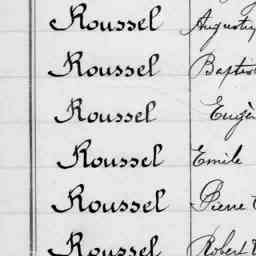 Roussel
Roussel Baptis
Roussel Eugè
Roussel Emile
Roussel Pierre
Roussel Robert